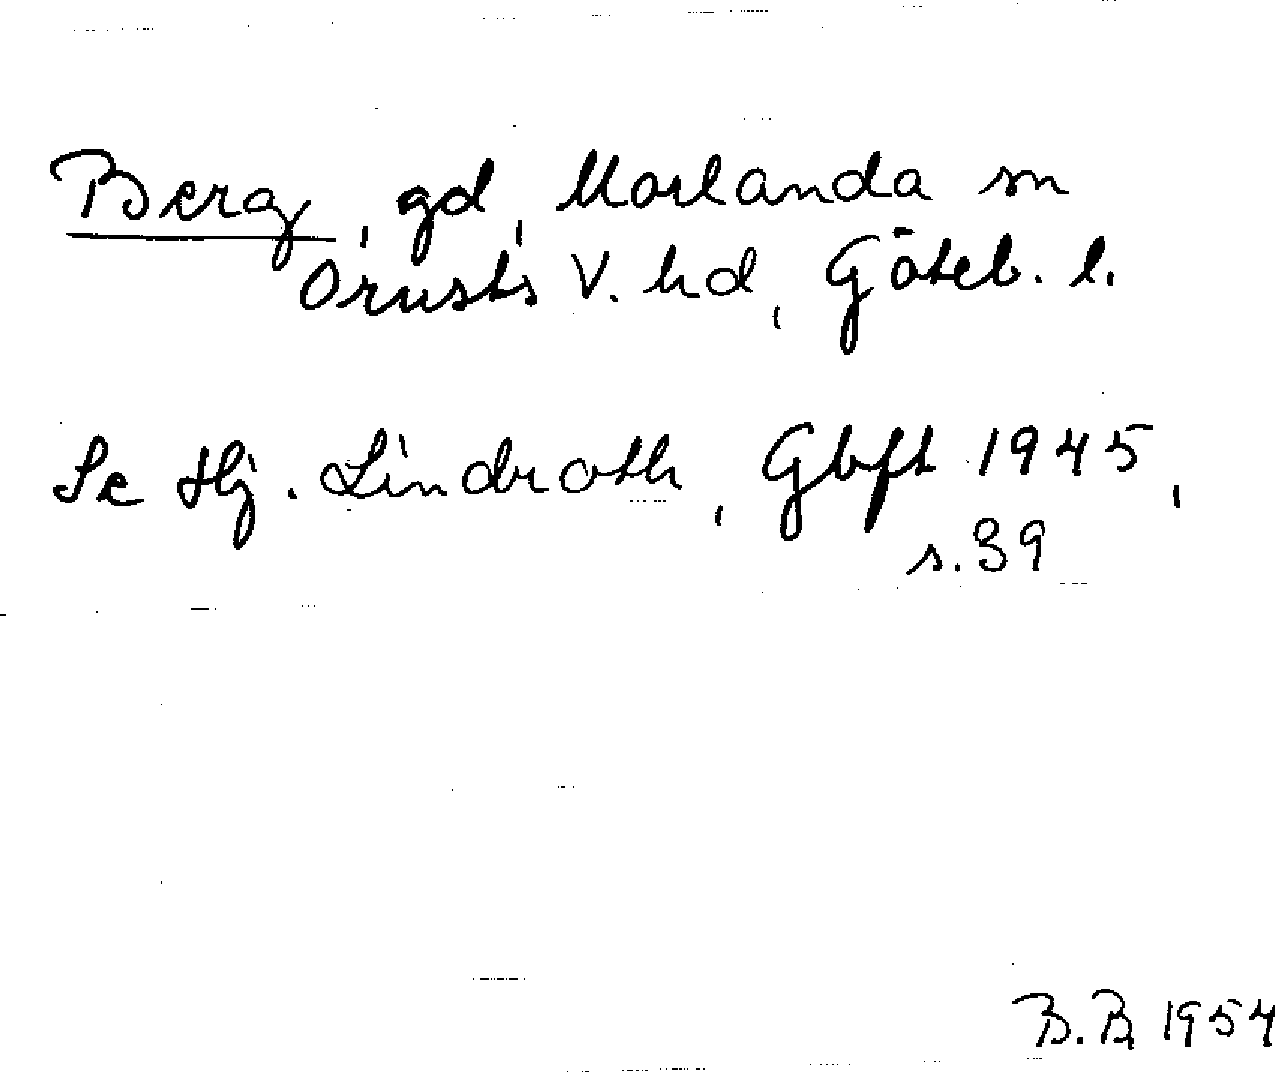 Berg, gd, Morlanda sn
Orusts V. hd, Göteb. l.
Se Hj. Lindroth, Gbft 1945,
s. 39
B.B 1954